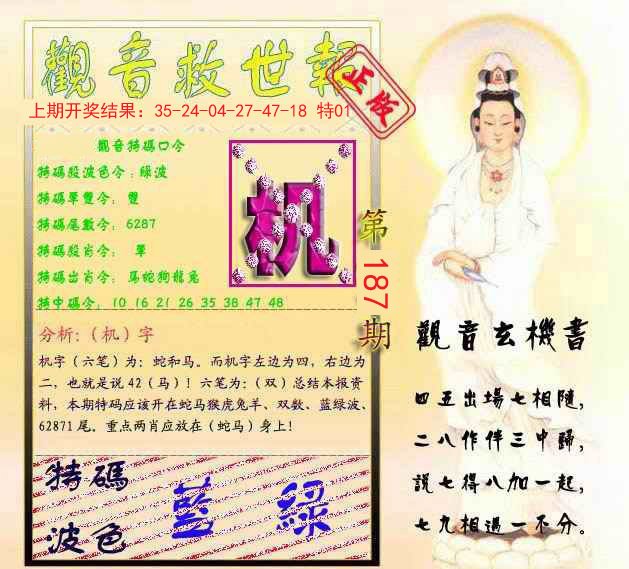 觀音救世報
正版
上期开奖结果：35-24-04-27-47-18 特01
觀音特碼口令
特碼段波色令：綠波
特碼單雙令： 雙
特碼尾數令： 6287
特碼段肖令： 單
特碼出肖令： 馬蛇狗龍兔
特中碼令： 10 16 21 26 35 38 47 48
机
第187期
分析:（机）字
机字（六笔）为：蛇和马。而机字左边为四，右边为
二，也就是说42（马）！六笔为：（双）总结本报资
料，本期特码应该开在蛇马猴虎兔羊、双数、蓝绿波、
62871尾。重点两肖应放在（蛇马）身上！
特碼
波色
藍 綠
觀音玄機書
四五出場七相隨，
二八作伴三中歸，
說七得八加一起，
七九相遇一不分。